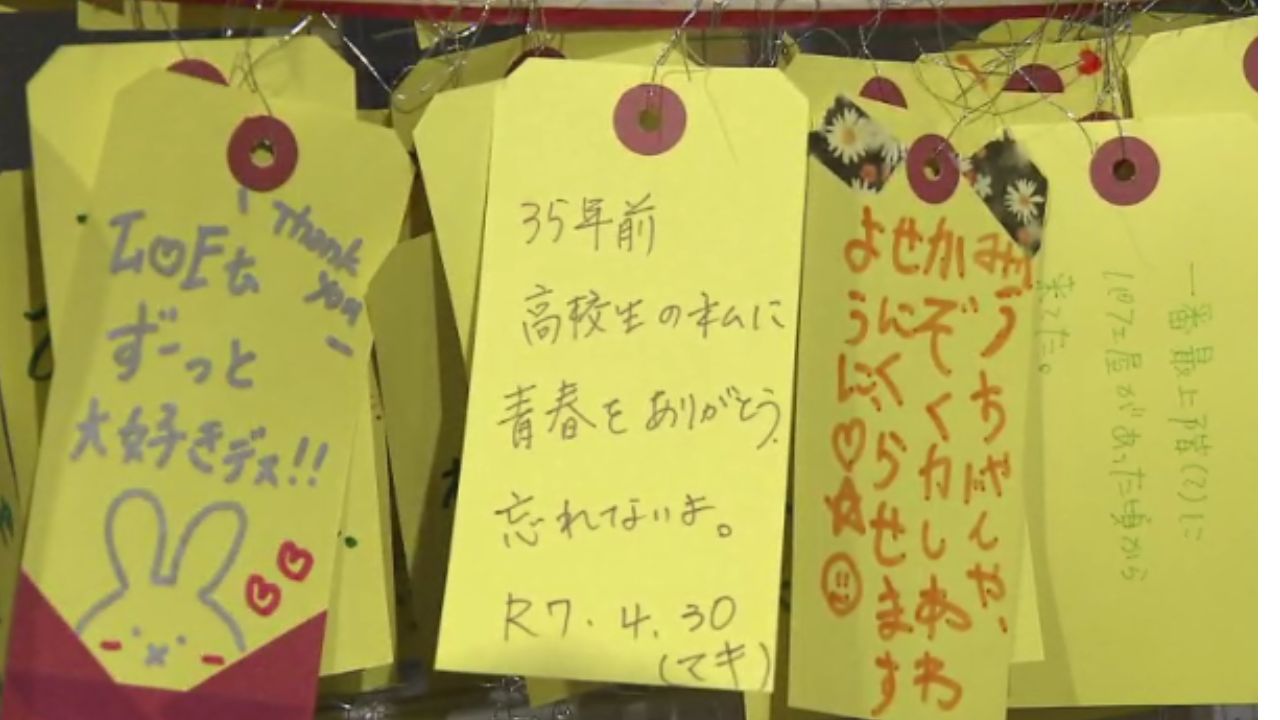 Thank
you
ずーっと
大好きデス!!
35年前
高校生の私に
青春をありがとう
忘れてないよ。
R7.4.30
(マキ)
うちゃんや、
かぞくカしあわ
せにくらせます
ように
一番最上階(?)に
フェ屋があった頃から